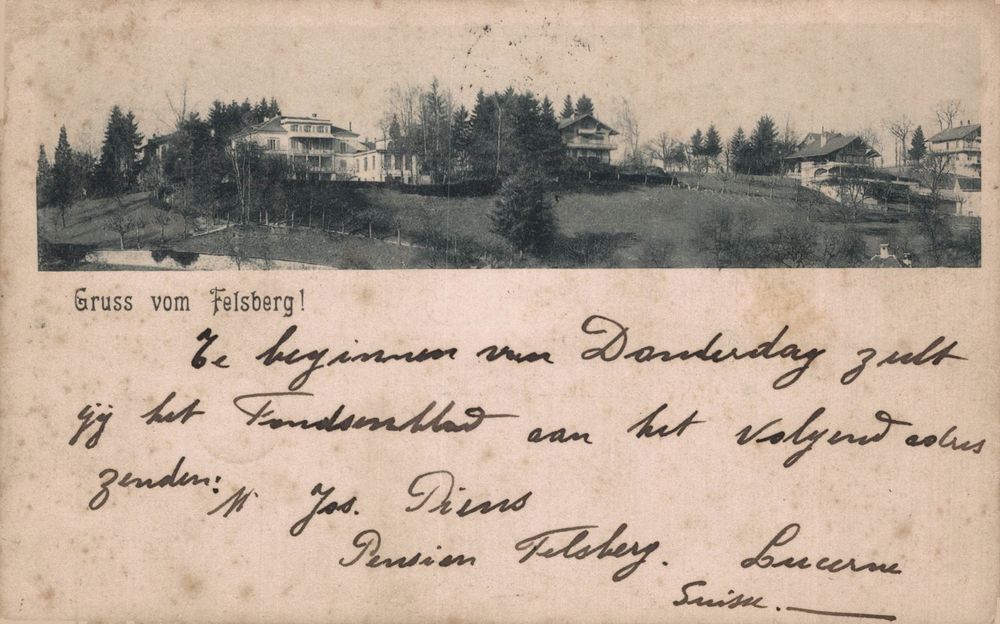 Gruss vom Felsberg!
Te beginnen van Donderdag zult
gij het Fondsenblad aan het volgend adres
zenden:
Mr Jos. Piens
Pension Felsberg. Lucerne
Suisse.